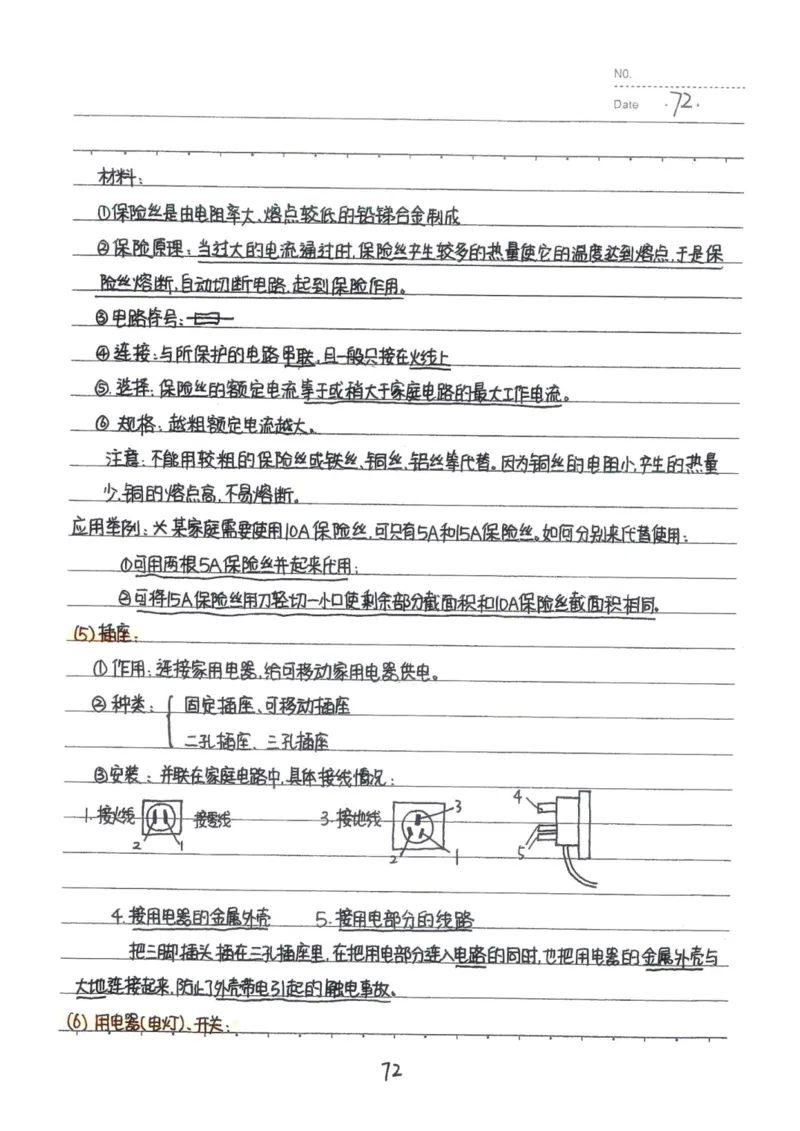 NO.
Date ·72·
材料:
①保险丝是由电阻率大、熔点较低的铅锑合金制成
②保险原理:当过大的电流通过时,保险丝产生较多的热量使它的温度达到熔点,于是保
险丝熔断,自动切断电路,起到保险作用。
③电路符号:
④连接:与所保护的电路串联,且一般只接在火线上
⑤.选择:保险丝的额定电流等于或稍大于家庭电路的最大工作电流。
⑥ 规格:越粗额定电流越大。
注意:不能用较粗的保险丝或铁丝、铜丝、铝丝等代替。因为铜丝的电阻小,产生的热量
少,铜的熔点高,不易熔断。
应用举例:※某家庭需要使用10A保险丝,可只有5A和15A保险丝。如何分别来代替使用:
①可用两根5A保险丝并起来代用;
②可将15A保险丝用刀轻切一小口使剩余部分截面积和10A保险丝截面积相同。
(5)插座:
①作用:连接家用电器,给可移动家用电器供电。
②种类: 固定插座、可移动插座
二孔插座、三孔插座
③安装:并联在家庭电路中,具体接线情况:
1.接火线 2 1 接零线 3.接地线 3 2 1 4 5
4.接用电器的金属外壳 5.接用电部分的线路
把三脚插头插在三孔插座里,在把用电部分连入电路的同时,也把用电器的金属外壳与
大地连接起来,防止了外壳带电引起的触电事故。
(6)用电器(电灯)、开关:
72